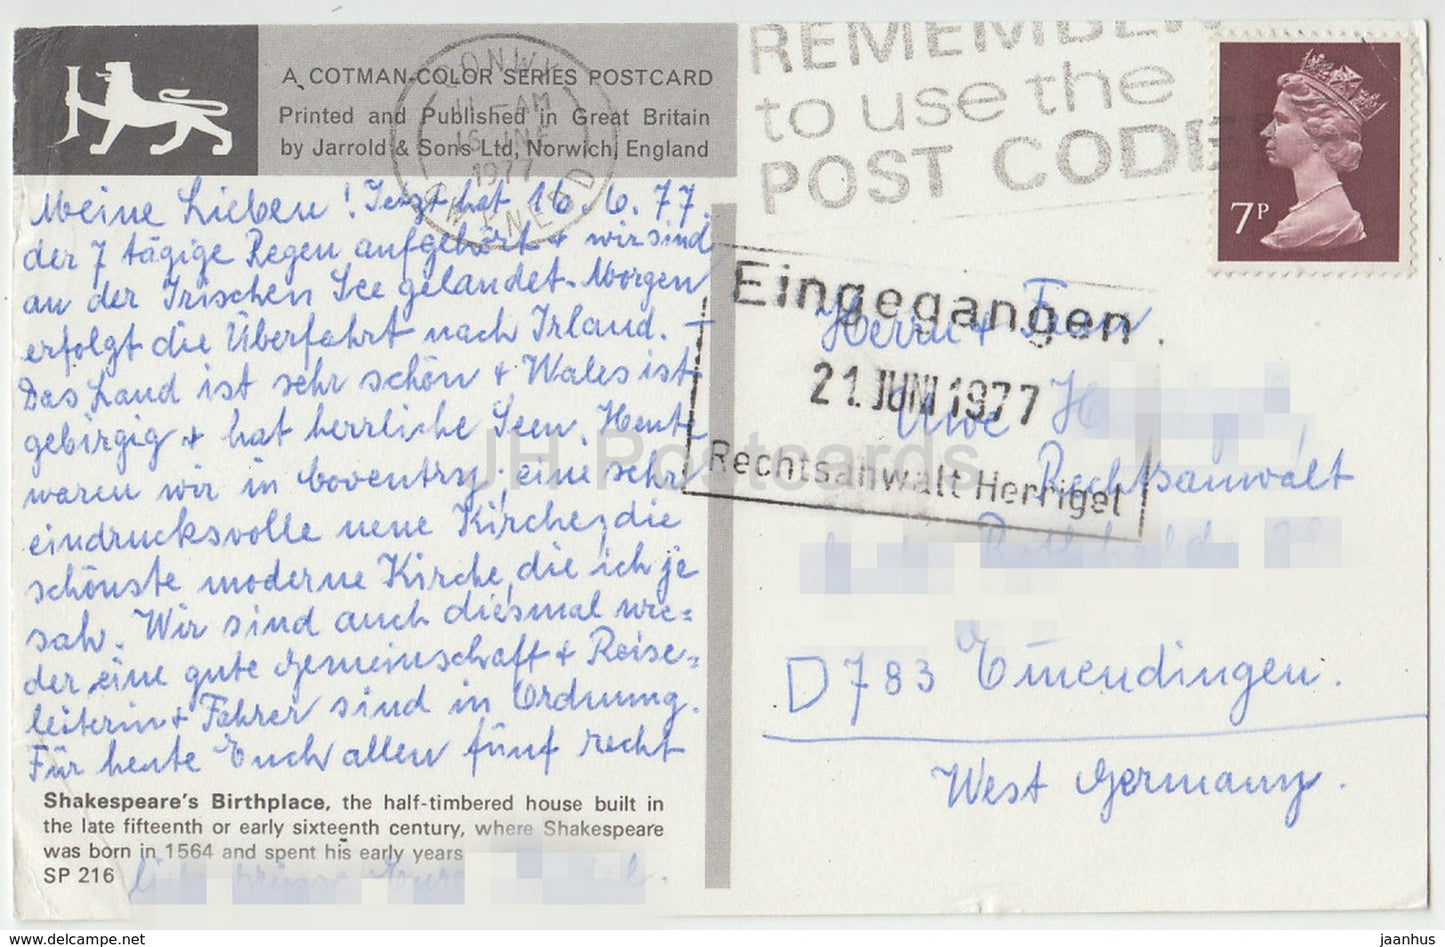 A COTMAN-COLOR SERIES POSTCARD
Printed and Published in Great Britain
by Jarrold & Sons Ltd, Norwich, England
CONWY
11 - AM
16 JNE
1977
GWYNEDD
REMEMBER
to use the
POST CODE
7P
Meine Lieben! Jetzt, hat 16.6.77.
der 7 tägige Regen aufgehört + wir sind
an der Irischen See gelandet. Morgen
erfolgt die Überfahrt nach Irland. –
Das Land ist sehr schön + Wales ist
gebirgig + hat herrliche Seen. Heute
waren wir in Coventry, eine sehr
eindrucksvolle neue Kirche, die
schönste moderne Kirche, die ich je
sah. Wir sind auch diesmal wie=
der eine gute Gemeinschaft + Reise=
leiterin + Fahrer sind in Ordnung.
Für heute Euch allen fünf recht
liebe Grüsse Eure
Shakespeare's Birthplace, the half-timbered house built in
the late fifteenth or early sixteenth century, where Shakespeare
was born in 1564 and spent his early years
SP 216
Eingegangen
21. JUNI 1977
Rechtsanwalt Herrigel
Herrn + Frau
Uwe H
Rechtsanwalt
D 783 Emmendingen.
West Germany.
JH Postcards
www.delcampe.net
jaanhus